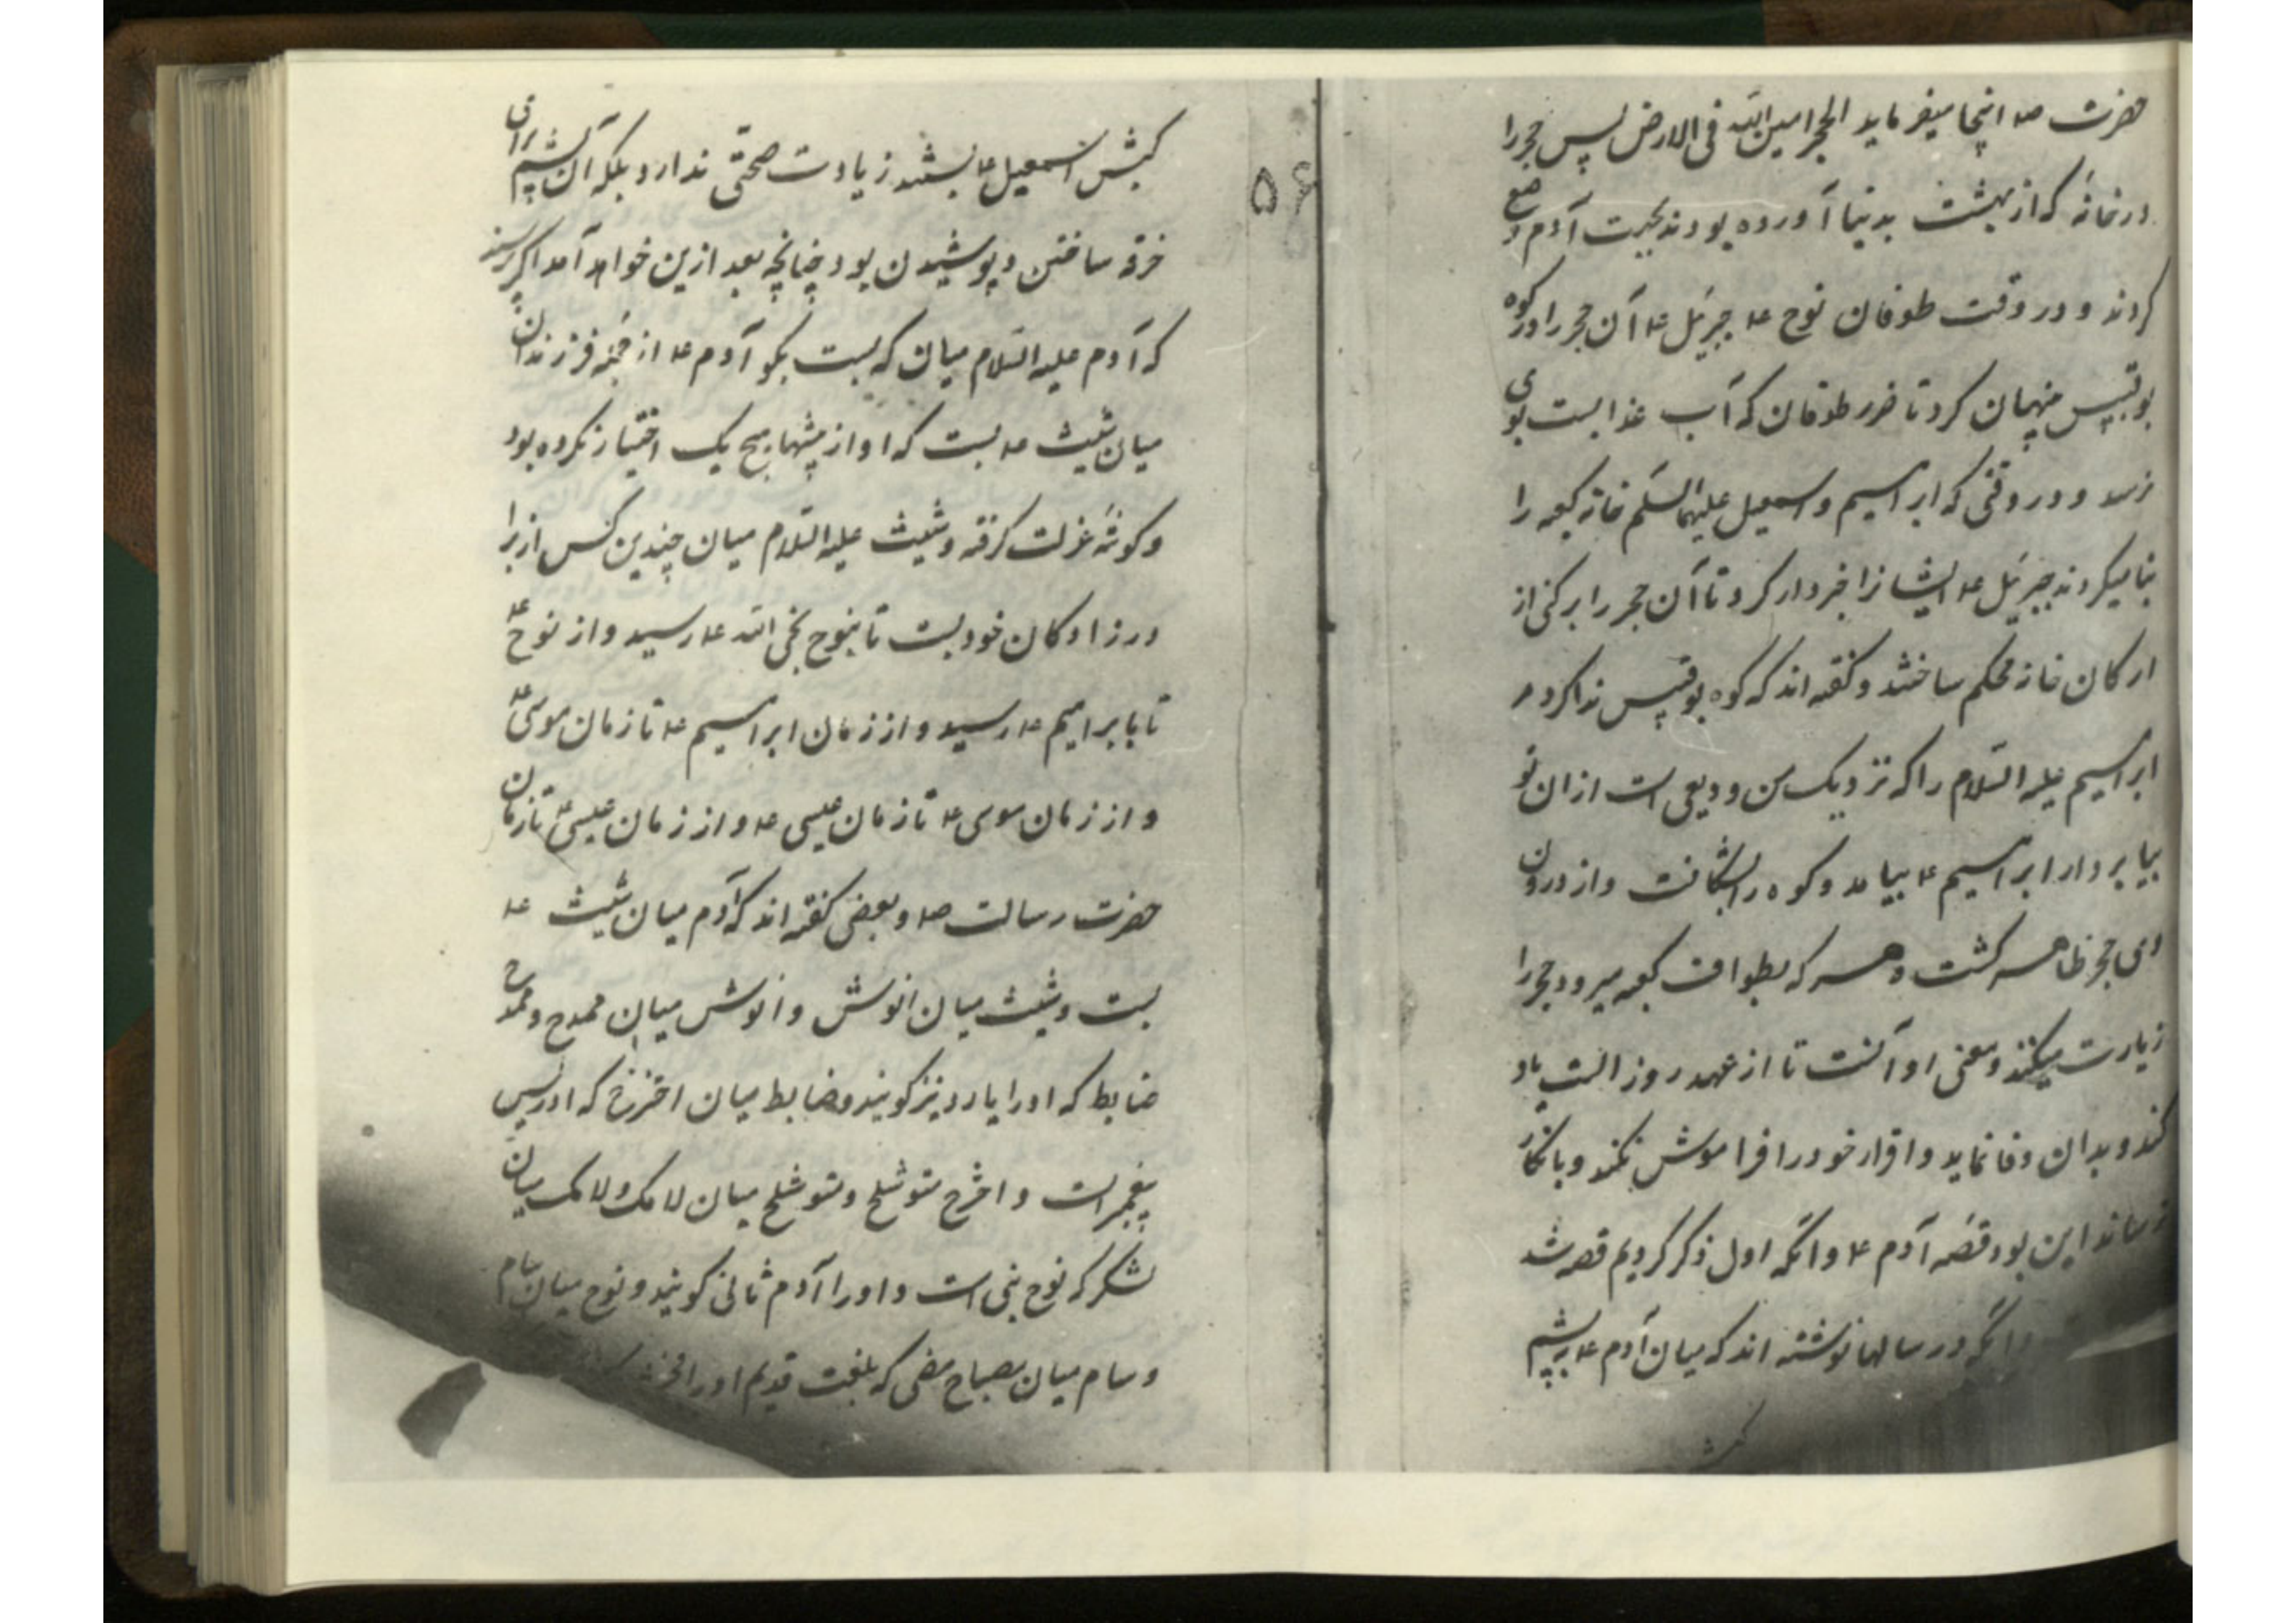 حضرت صه اینجا میفرماید الحجر امین الله فی الارض پس حجر را
در خانهٔ که از بهشت بدنیا آورده بودند بجهت آدم وضع
کردند و در وقت طوفان نوح عه جبرئیل عه آن حجر را در کوه
بوقبیس پنهان کرد تا ضرر طوفان که آب عذابست بوی
نرسد و در وقتی که ابراهیم و اسمعیل علیهما السلم خانه کعبه را
بنا میکردند جبرئیل عه ایشانرا خبردار کرد تا آن حجر را برکنی از
ارکان خانه محکم ساختند و گفته اند که کوه بوقبیس ندا کرد مر
ابراهیم علیه السلام را که نزدیک من ودیعی است ازان تو
بیا بردار ابراهیم عه بیامد و کوه را بشکافت و از درون
وی حجر ظاهر گشت و هر که بطواف کعبه میرود حجر را
زیارت میکنند و معنی او آنست تا از عهد روز الست یاد
کند و بدان وفا نماید و اقرار خود را فراموش نکند و بانکار
نرساند این بود قصهٔ آدم عه و آنکه اول ذکر کردیم قصه شد
و آنکه در رسالها نوشته اند که میان آدم عه بپشم
کبش
۵۶
کبش اسمعیل عه بستند زیادت صحتی ندارد بلکه آن پشم برای
خرقه ساختن و پوشیدن بود چنانچه بعد ازین خواهد آمد اگر پرسند
که آدم علیه السلام میان که بست بگو آدم عه از جمله فرزندان
میان شیث عه بست که او از پیشها هیچ یک اختیار نکرده بود
و کوشهٔ عزلت گرفته و شیث علیه السلام میان چندین کس از برا
درزادکان خود بست تا بنوح نجی الله عه رسید و از نوح عه
تا بابراهیم عه رسید و از زمان ابراهیم عه تا زمان موسی عه
و از زمان موسی عه تا زمان عیسی عه و از زمان عیسی عه تا زمان
حضرت رسالت صه و بعضی گفته اند که آدم میان شیث عه
بست و شیث میان انوش و انوش میان ممدوح و ممدوح
ضابط که او را یارد نیز کویند و ضابط میان اخنوخ که ادریس
پیغمبر است و اخنوخ متوشلح و متوشلح میان لامک و لامک میان
لشکر که نوح نبی است و او را آدم ثانی کویند و نوح میان سام
و سام میان مصباح مضی که بلغت قدیم او را